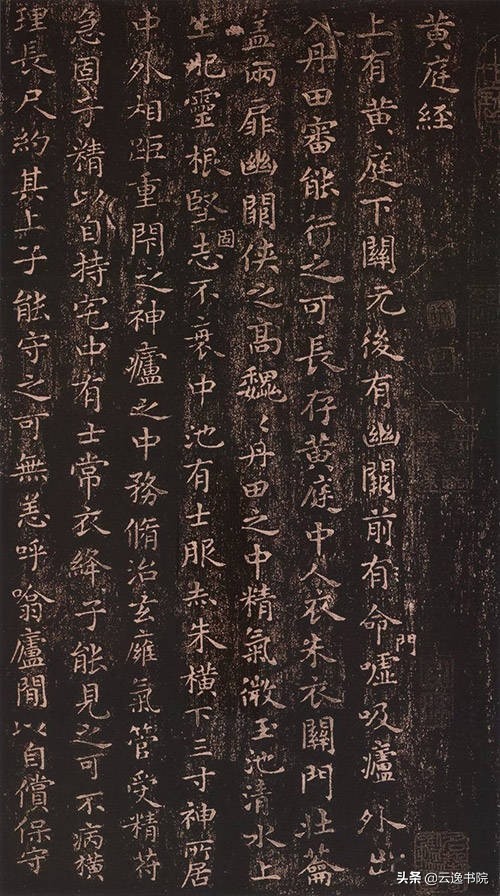 黃庭經
上有黃庭下關元後有幽闕前有命門噓吸廬外出
入丹田審能行之可長存黃庭中人衣朱衣關門壯籥
蓋兩扉幽闕俠之高巍〻丹田之中精氣微玉池清水上
生肥靈根堅固志不衰中池有士服赤朱橫下三寸神所居
中外相距重閇之神廬之中務脩治玄㢕氣管受精符
急固子精以自持宅中有士常衣絳子能見之可不病橫
理長尺約其上子能守之可無恙呼噏廬間以自償保守
头条 @云逸书院